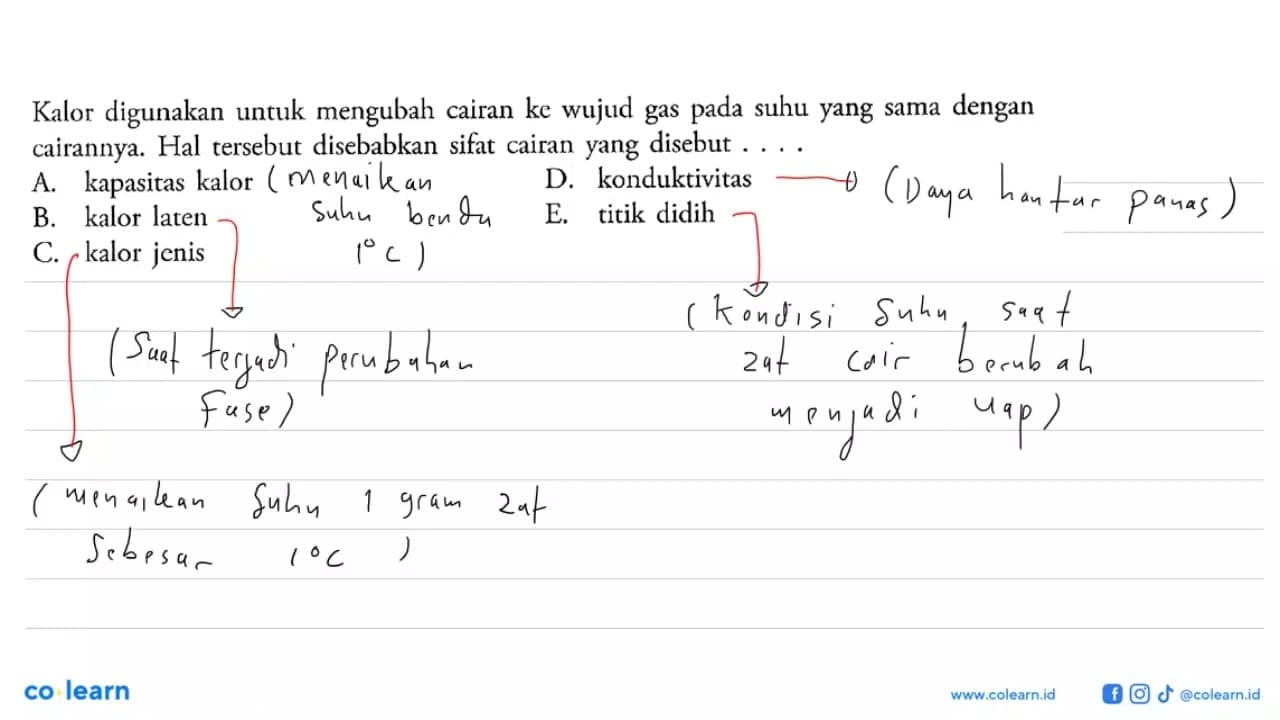 Kalor digunakan untuk mengubah cairan ke wujud gas pada suhu yang sama dengan
cairannya. Hal tersebut disebabkan sifat cairan yang disebut . . . .
A. kapasitas kalor (menaikan
suhu benda
1°C)
B. kalor laten
C. kalor jenis
D. konduktivitas (Daya hantar panas)
E. titik didih
(Saat terjadi perubahan
Fase)
(Kondisi suhu, saat
zat cair berubah
menjadi uap)
(menaikan suhu 1 gram zat
sebesar 1°C )
co learn
www.colearn.id
@colearn.id